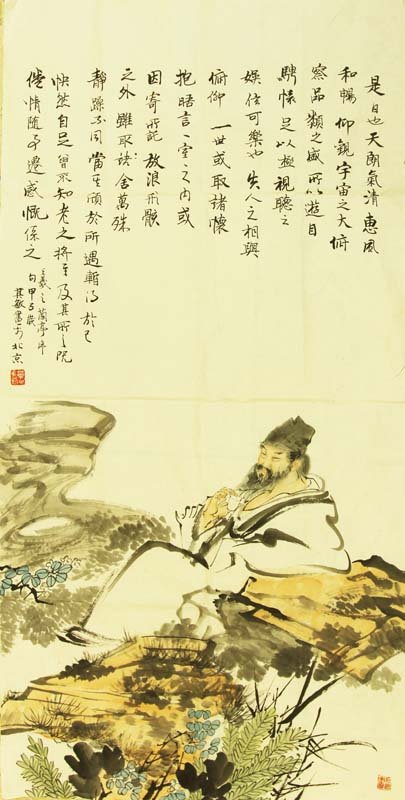 是日也天朗氣清惠風
和暢仰觀宇宙之大俯
察品類之盛所以遊目
騁懷足以極視聽之
娛信可樂也夫人之相與
俯仰一世或取諸懷
抱晤言一室之內或
因寄所託放浪形骸
之外雖取舍萬殊
靜躁不同當其欣於所遇暫得於己
怏然自足曾不知老之將至及其所之既
倦情隨事遷感慨係之
王羲之蘭亭序
句甲歲
其敏畫於北京